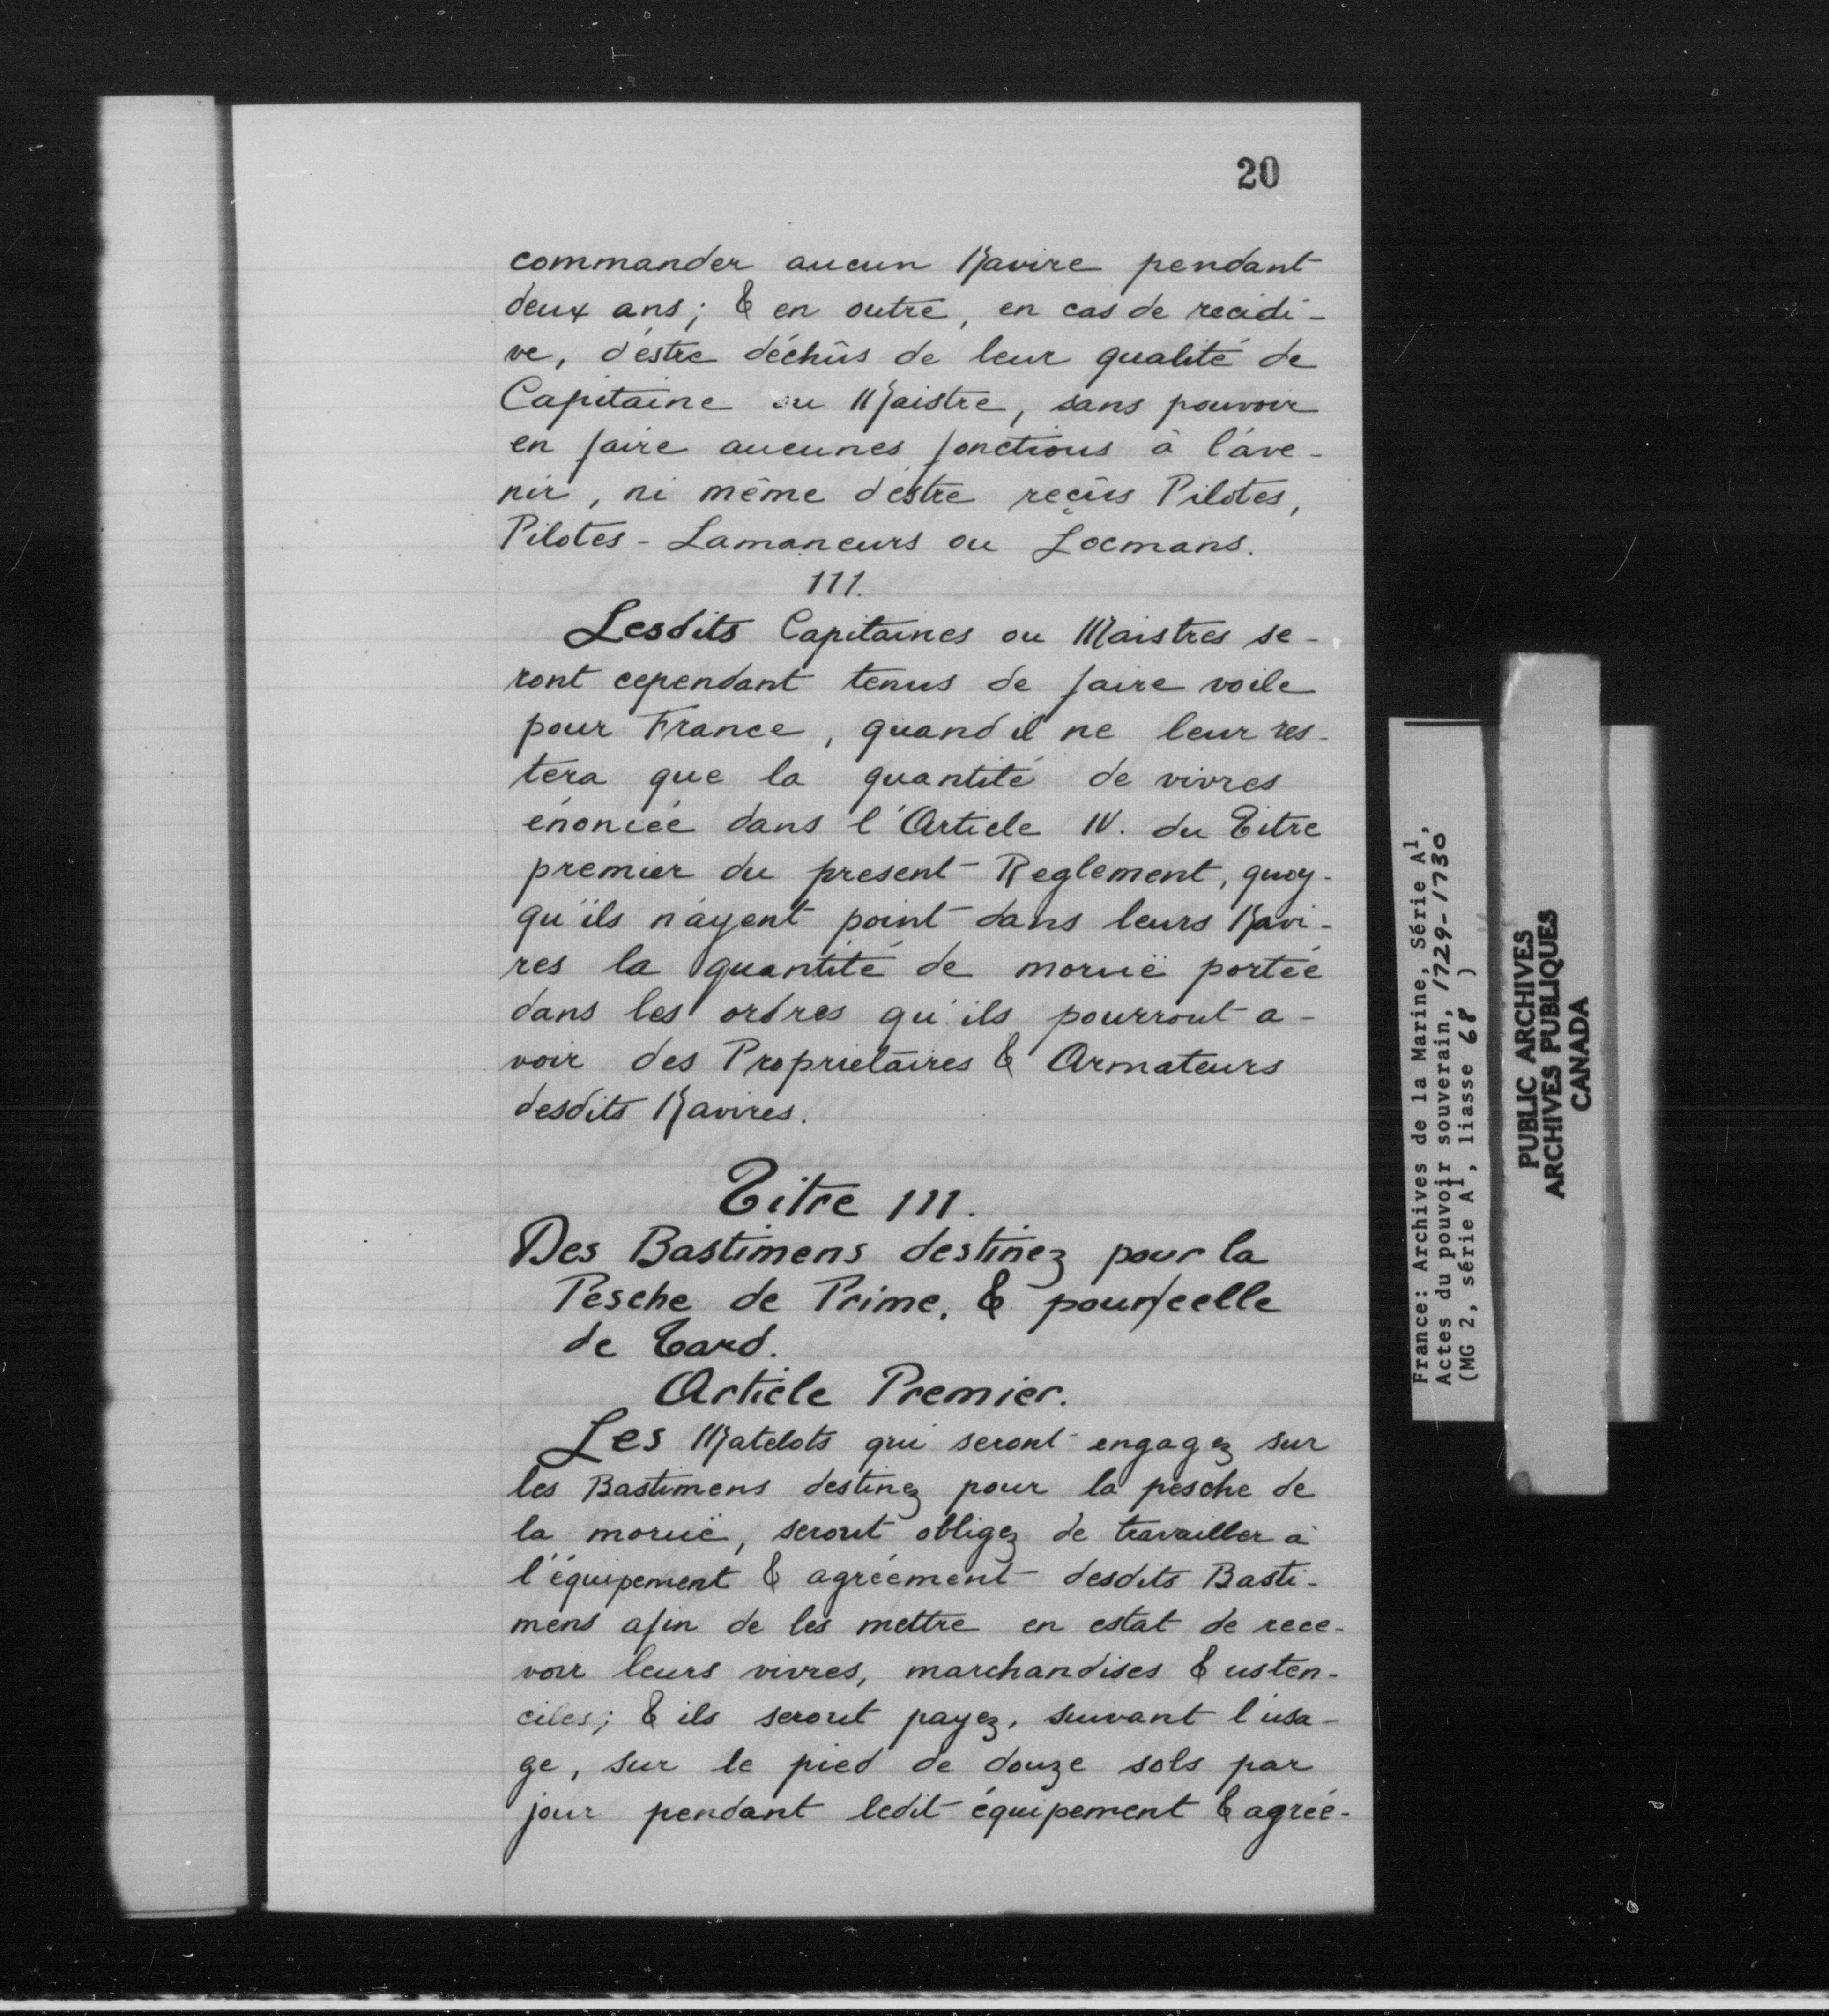 20
commander aucun Navire pendant
deux ans; & en outre, en cas de recidi-
ve, d'éstre déchûs de leur qualité de
Capitaine ou Maistre, sans pouvoir
en faire aucunes fonctions à l'ave-
nir, ni même d'éstre reçûs Pilotes,
Pilotes-Lamaneurs ou Locmans.
III.
Lesdits Capitaines ou Maistres se-
ront cependant tenus de faire voile
pour France, quand il ne leur res-
tera que la quantité de vivres
énoncée dans l'Article IV. du Titre
premier du present Reglement, quoy-
qu'ils n'ayent point dans leurs Navi-
res la quantité de moruë portée
dans les ordres qu'ils pourront a-
voir des Proprietaires & Armateurs
desdits Navires.
Titre III.
Des Bastimens destinez pour la
Pesche de Prime, & pour celle
de Tard.
Article Premier.
Les Matelots qui seront engagez sur
les Bastimens destinez pour la pesche de
la moruë, seront obligez de travailler à
l'équipement & agréement desdits Basti-
mens afin de les mettre en estat de rece-
voir leurs vivres, marchandises & usten-
ciles; & ils seront payez, suivant l'usa-
ge, sur le pied de douze sols par
jour pendant ledit équipement & agrée-
France: Archives de la Marine, Série A1,
Actes du pouvoir souverain, 1729-1730
(MG 2, série A1, liasse 68 )
PUBLIC ARCHIVES
ARCHIVES PUBLIQUES
CANADA